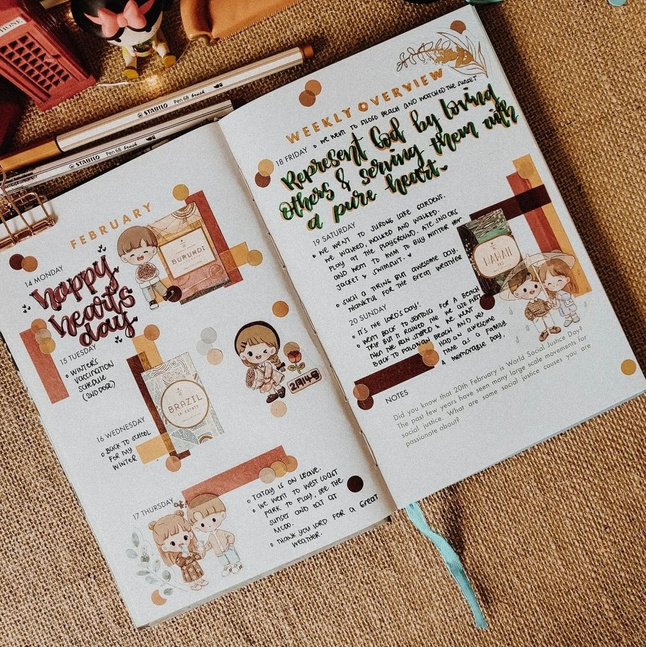 PHONE
STABILO Pen 68 brush
STABILO Pen 68 brush
FEBRUARY
14 MONDAY
happy
hearts
day
BURUNDI
15 TUESDAY
WINTER'S
VACCINATION
SCHEDULE
(2ND DOSE)
BRAZIL
16 WEDNESDAY
BACK TO SCHOOL
FOR MY
WINTER
17 THURSDAY
TATAY IS ON LEAVE.
WE WENT TO WEST COAST
PARK TO PLAY, SEE THE
SUNSET AND EAT AT
MCDO.
THANK YOU LORD FOR A GREAT
WEATHER.
WEEKLY OVERVIEW
18 FRIDAY
WE WENT TO SILOSO BEACH AND WATCHED THE SUNSET
Represent God by loving
others & serving them with
a pure heart.
19 SATURDAY
WE WENT TO JURONG LAKE GARDENS.
WE WALKED, WALKED AND WALKED.
PLAY AT THE PLAYGROUND. ATE SNACKS
AND WENT TO IMM TO BUY WINTER HER
JACKET & SWIMSUIT.
SUCH A TIRING BUT AWESOME DAY.
THANKFUL FOR THE GREAT WEATHER
20 SUNDAY
IT'S THE LORD'S DAY!
WENT BACK TO SENTOSA FOR A BEACH
TRIP BUT IT RAINED
THE RAIN STOPPED & WE WENT
BACK TO PALAWAN BEACH AND WE
HAD AN AWESOME
TIME AS A FAMILY.
A MEMORABLE DAY.
NOTES
Did you know that 20th February is World Social Justice Day?
The past few years have seen many large scale movements for
social justice. What are some social justice causes you are
passionate about?